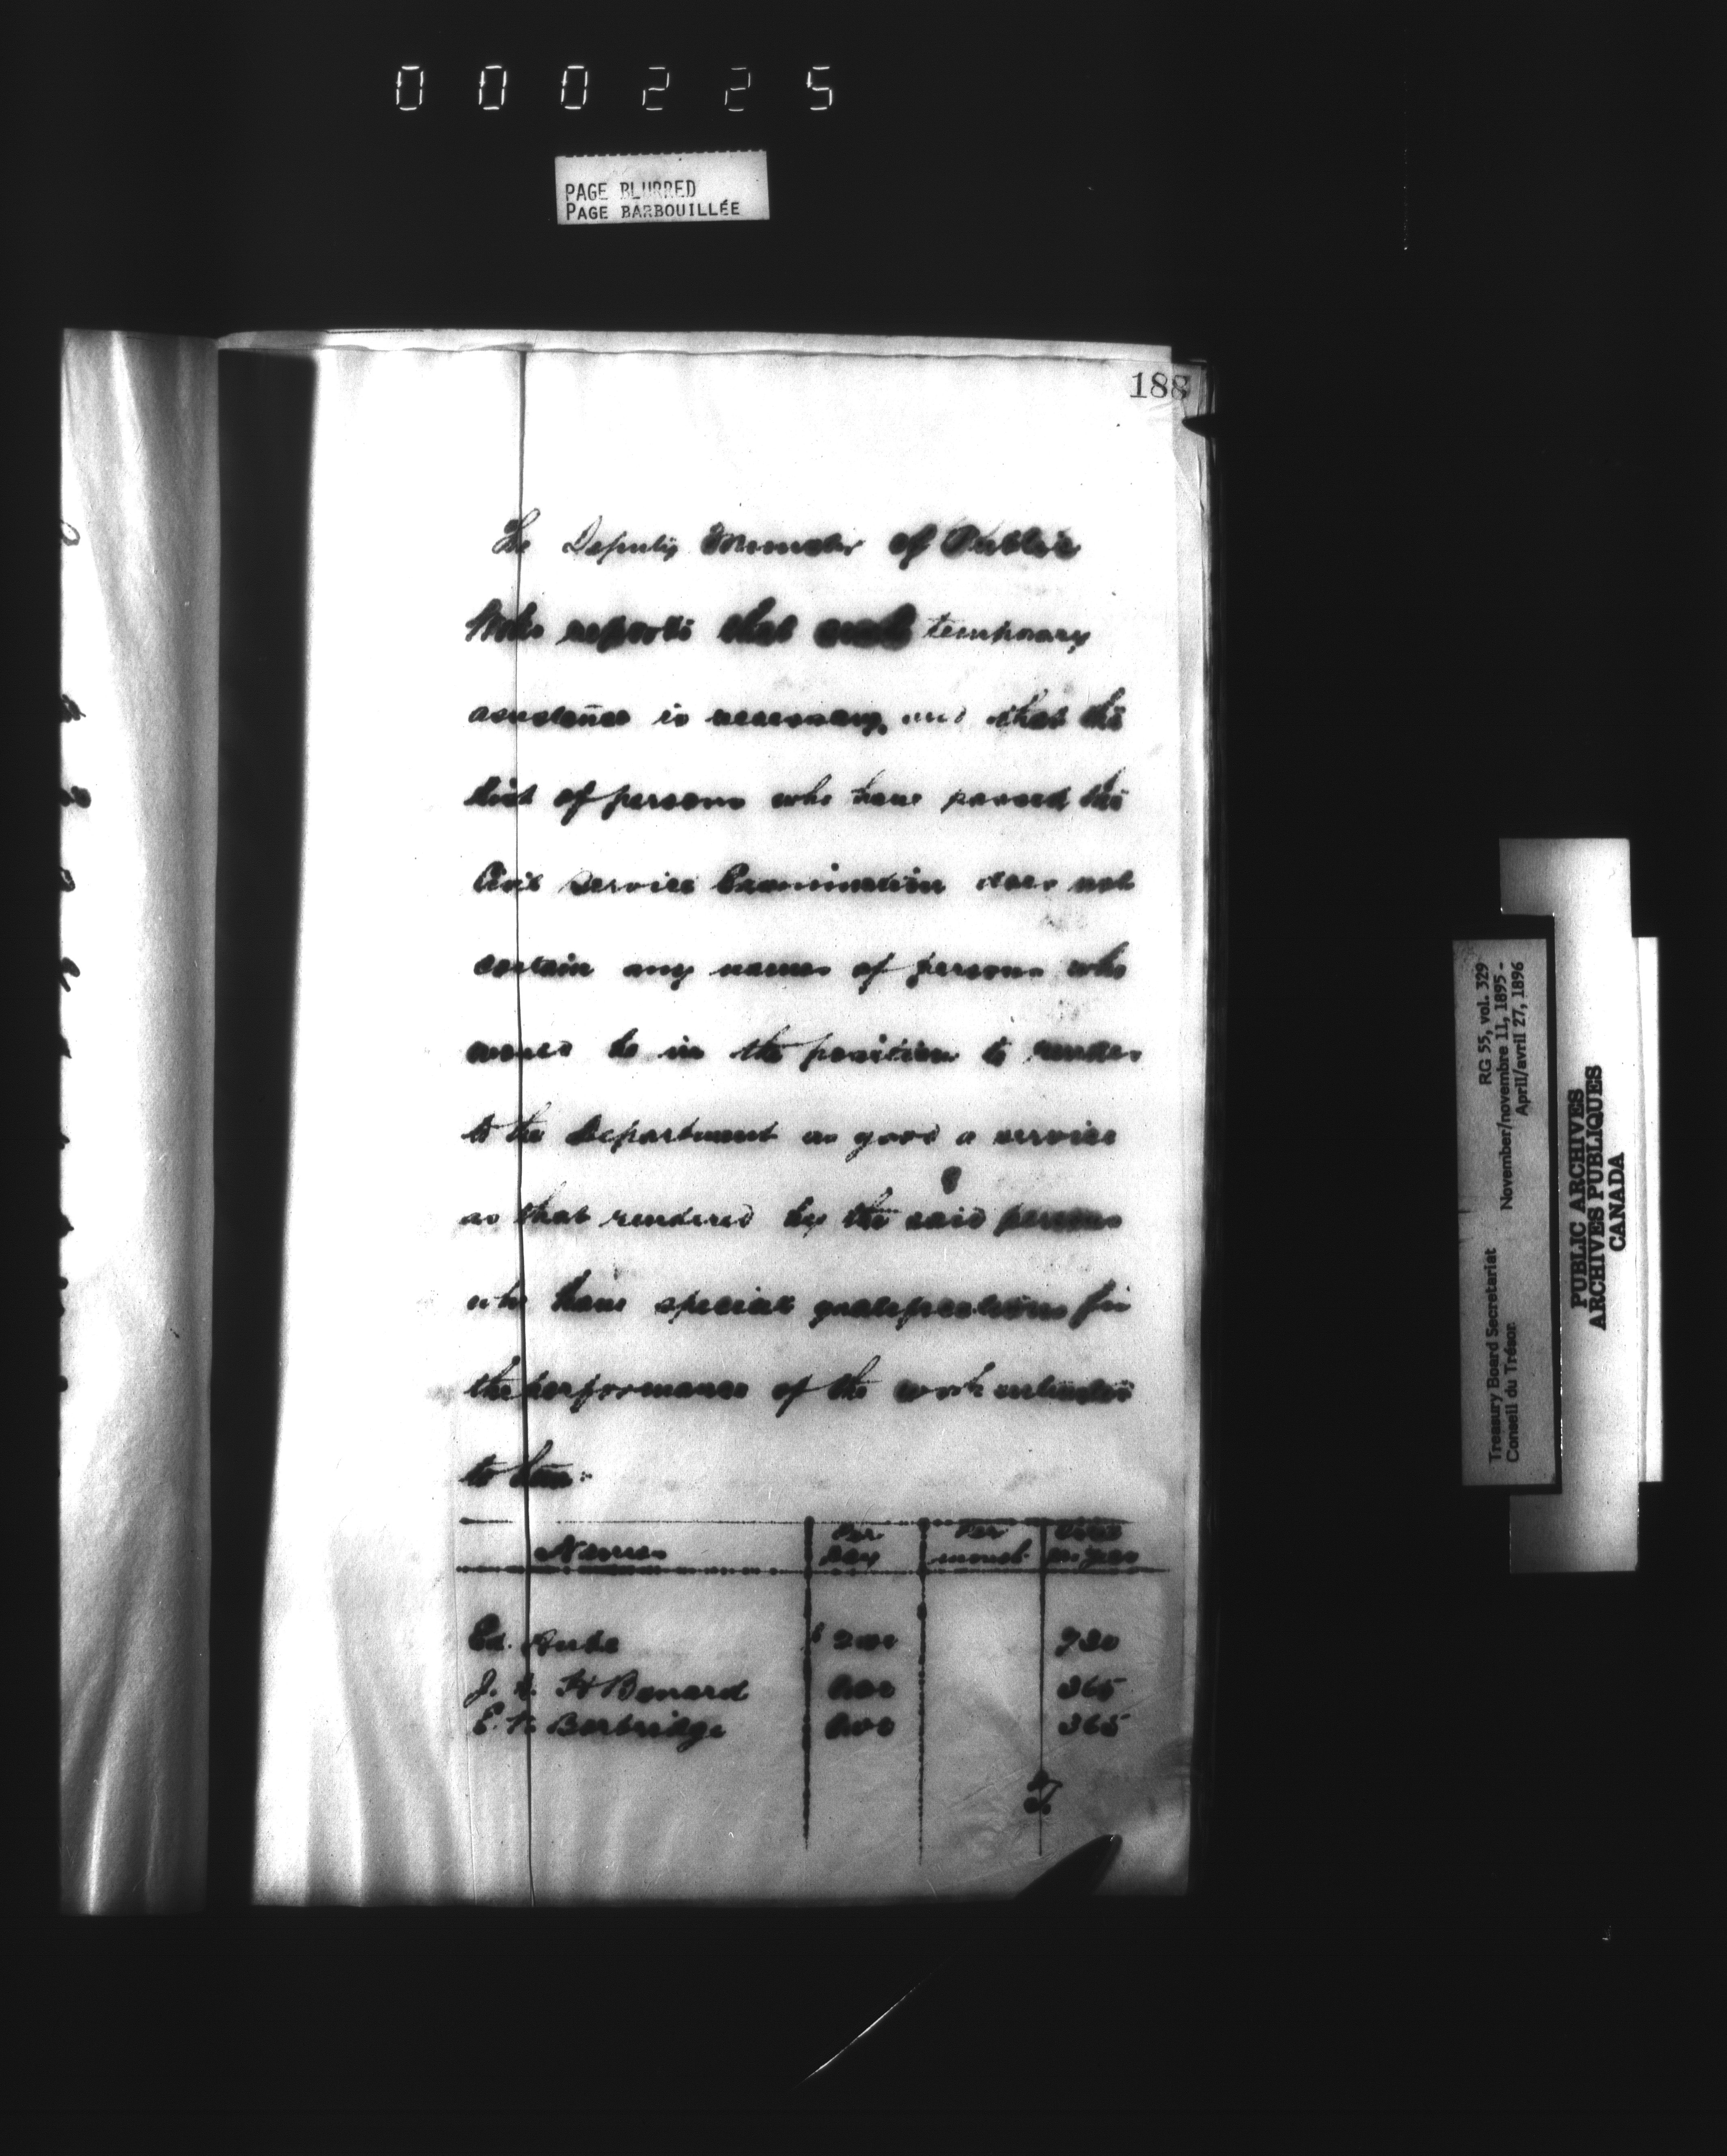 000225
PAGE BLURRED
PAGE BARBOUILLÉE
188
The Deputy Minister of Public
Works reports that such temporary
assistance is necessary, and that the
list of persons who have passed the
Civil Service Examination does not
contain any names of persons who
would be in the position to render
to the Department as good a service
as that rendered by the said persons
who have special qualifications for
the performance of the work entrusted
to them:-
Names Per Per
day month
Ed. $ 2.00 730
J. H Benard 1.00 365
E. Borbridge 1.00 365
Treasury Board Secretariat RG 55, vol. 329
Conseil du Trésor November/novembre 11, 1895 -
April/avril 27, 1896
PUBLIC ARCHIVES
ARCHIVES PUBLIQUES
CANADA